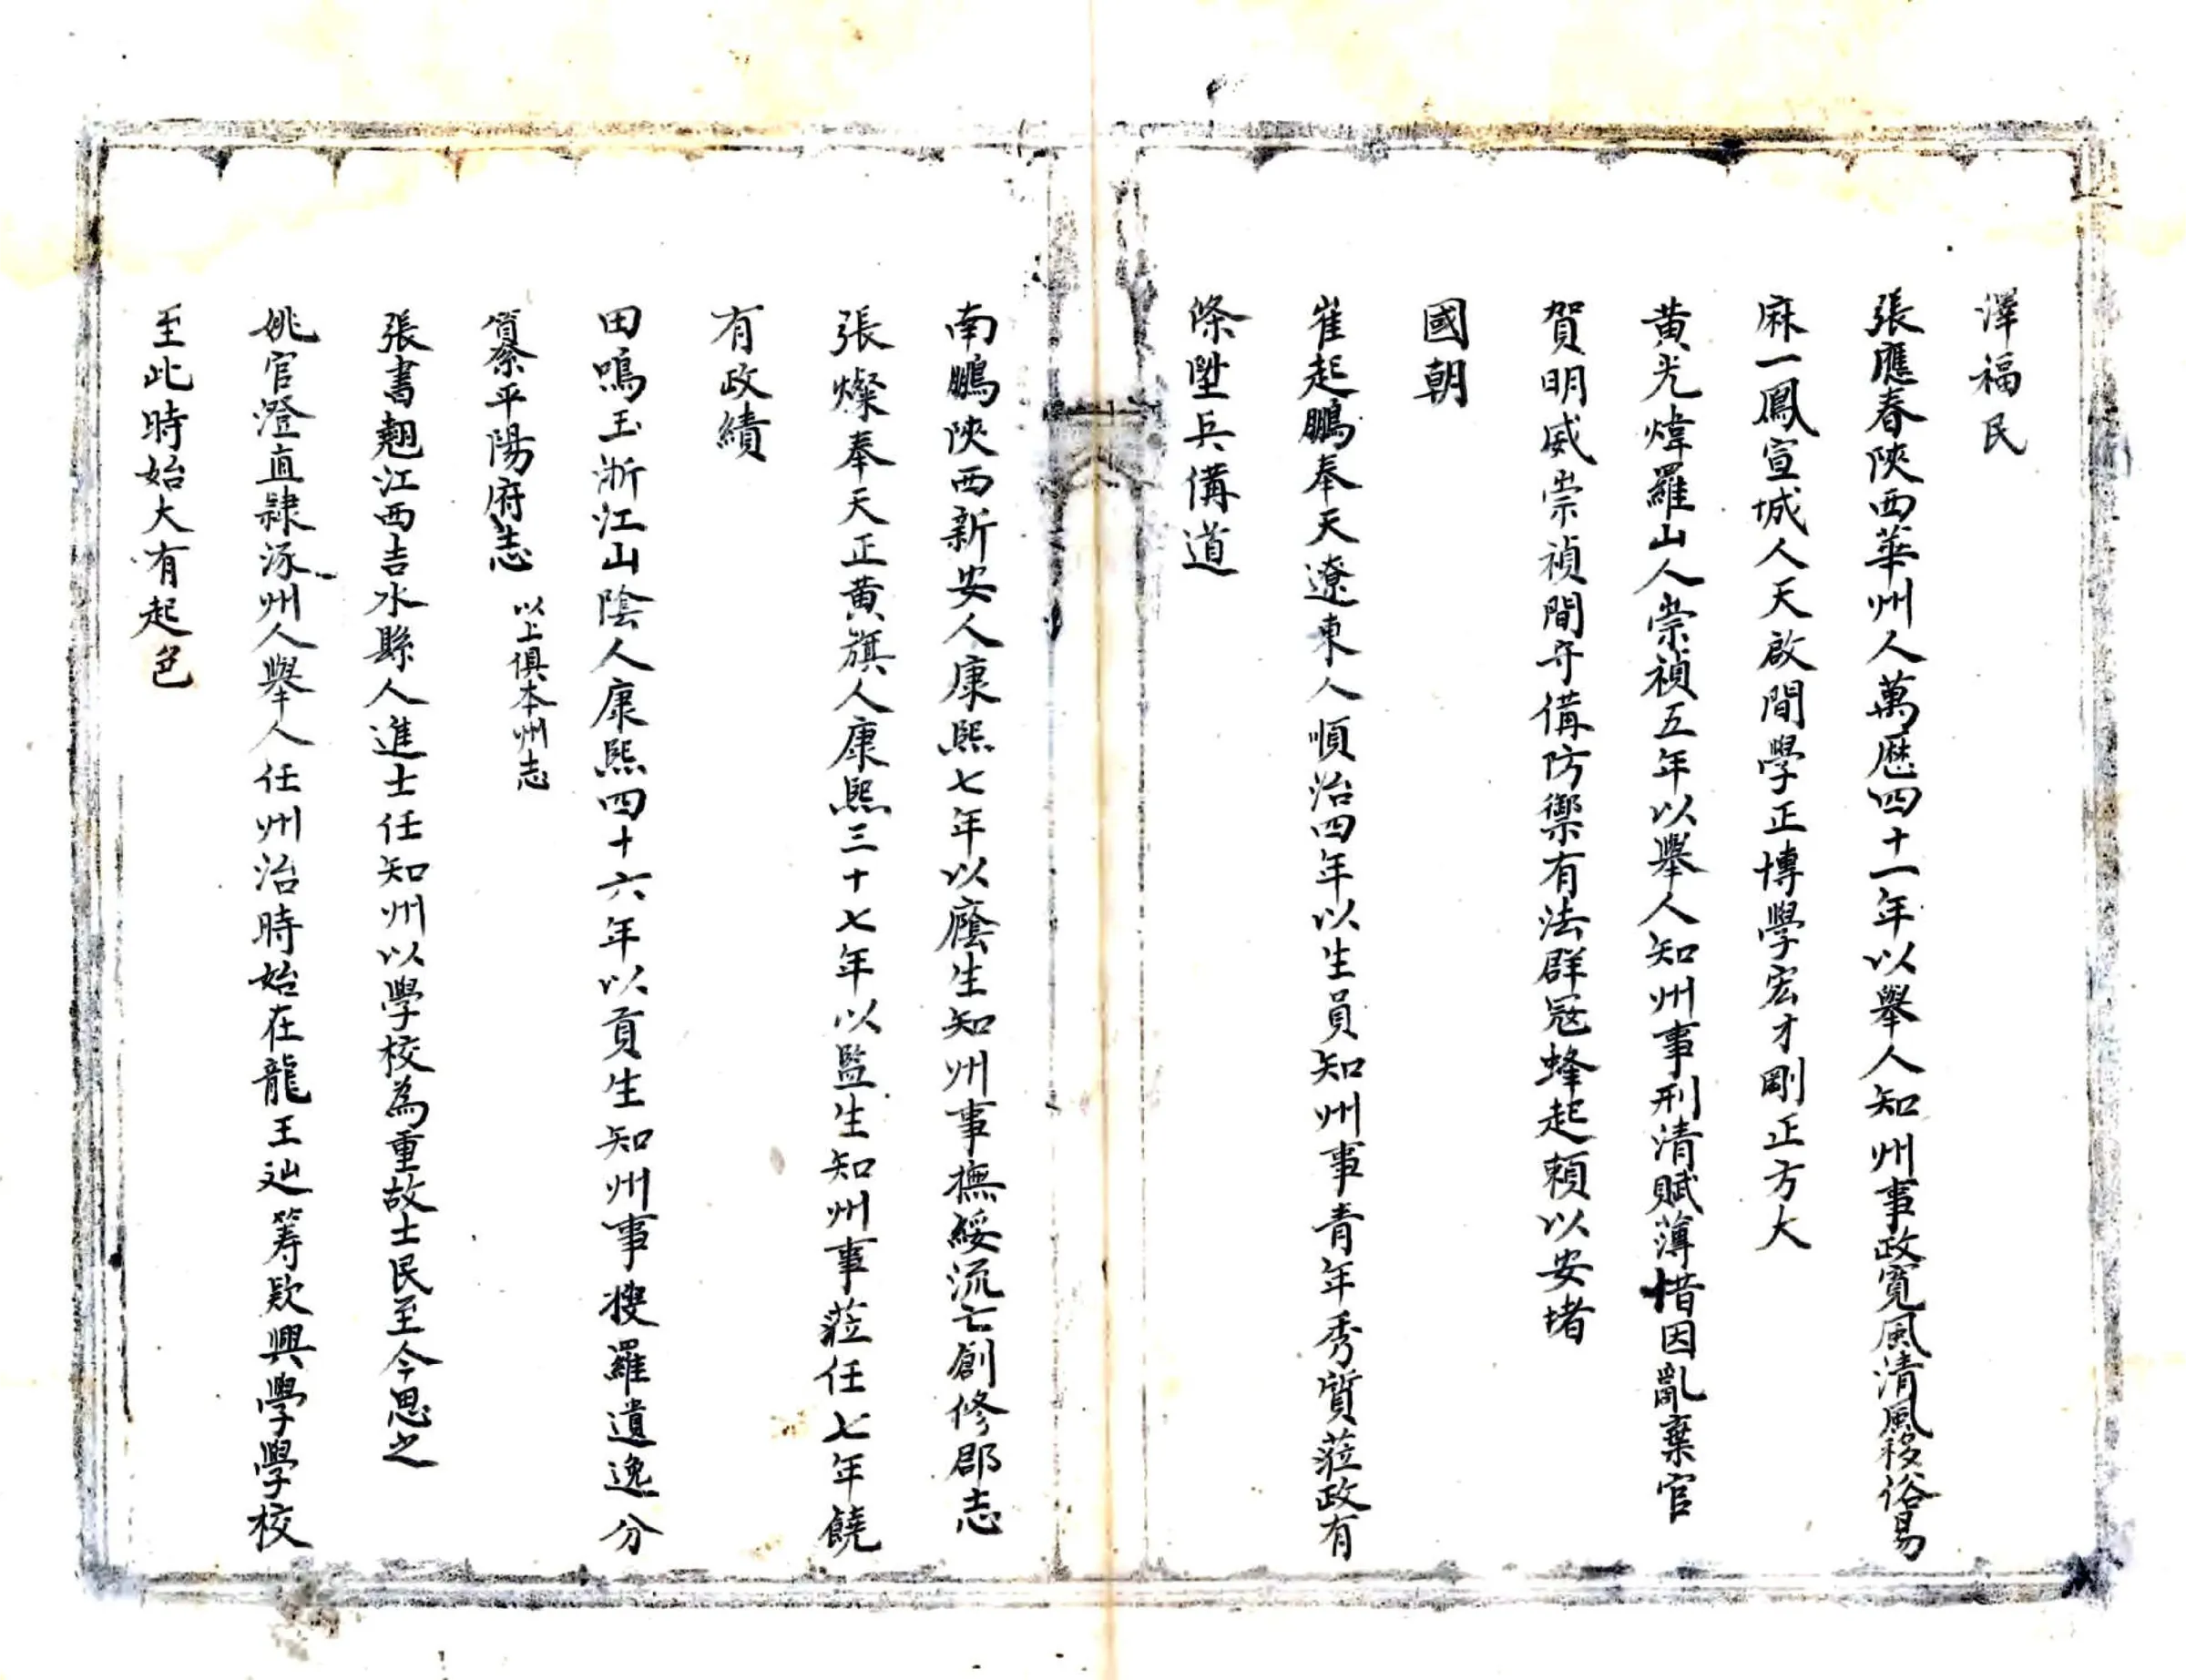 澤福民
張應春陝西華州人萬歷四十一年以舉人知州事政寬風清風移俗易
麻一鳳宣城人天啟間學正博學宏才剛正方大
黃光煒羅山人崇禎五年以舉人知州事刑清賦薄惜因亂棄官
賀明威崇禎間守備防禦有法群冦蜂起頼以安堵
國朝
崔起鵬奉天遼東人順治四年以生員知州事青年秀質蒞政有
條陞兵備道
南鵬陝西新安人康熙七年以廕生知州事撫綏流亡創修郡志
張燦奉天正黃旗人康熙三十七年以監生知州事蒞任七年饒
有政績
田鳴玉浙江山陰人康熙四十六年以貢生知州事搜羅遺逸分
纂平陽府志 以上俱本州志
張書翹江西吉水縣人進士任知州以學校為重故士民至今思之
姚官澄直隸涿州人舉人任州治時始在龍王辿籌欵興學學校
至此時始大有起色